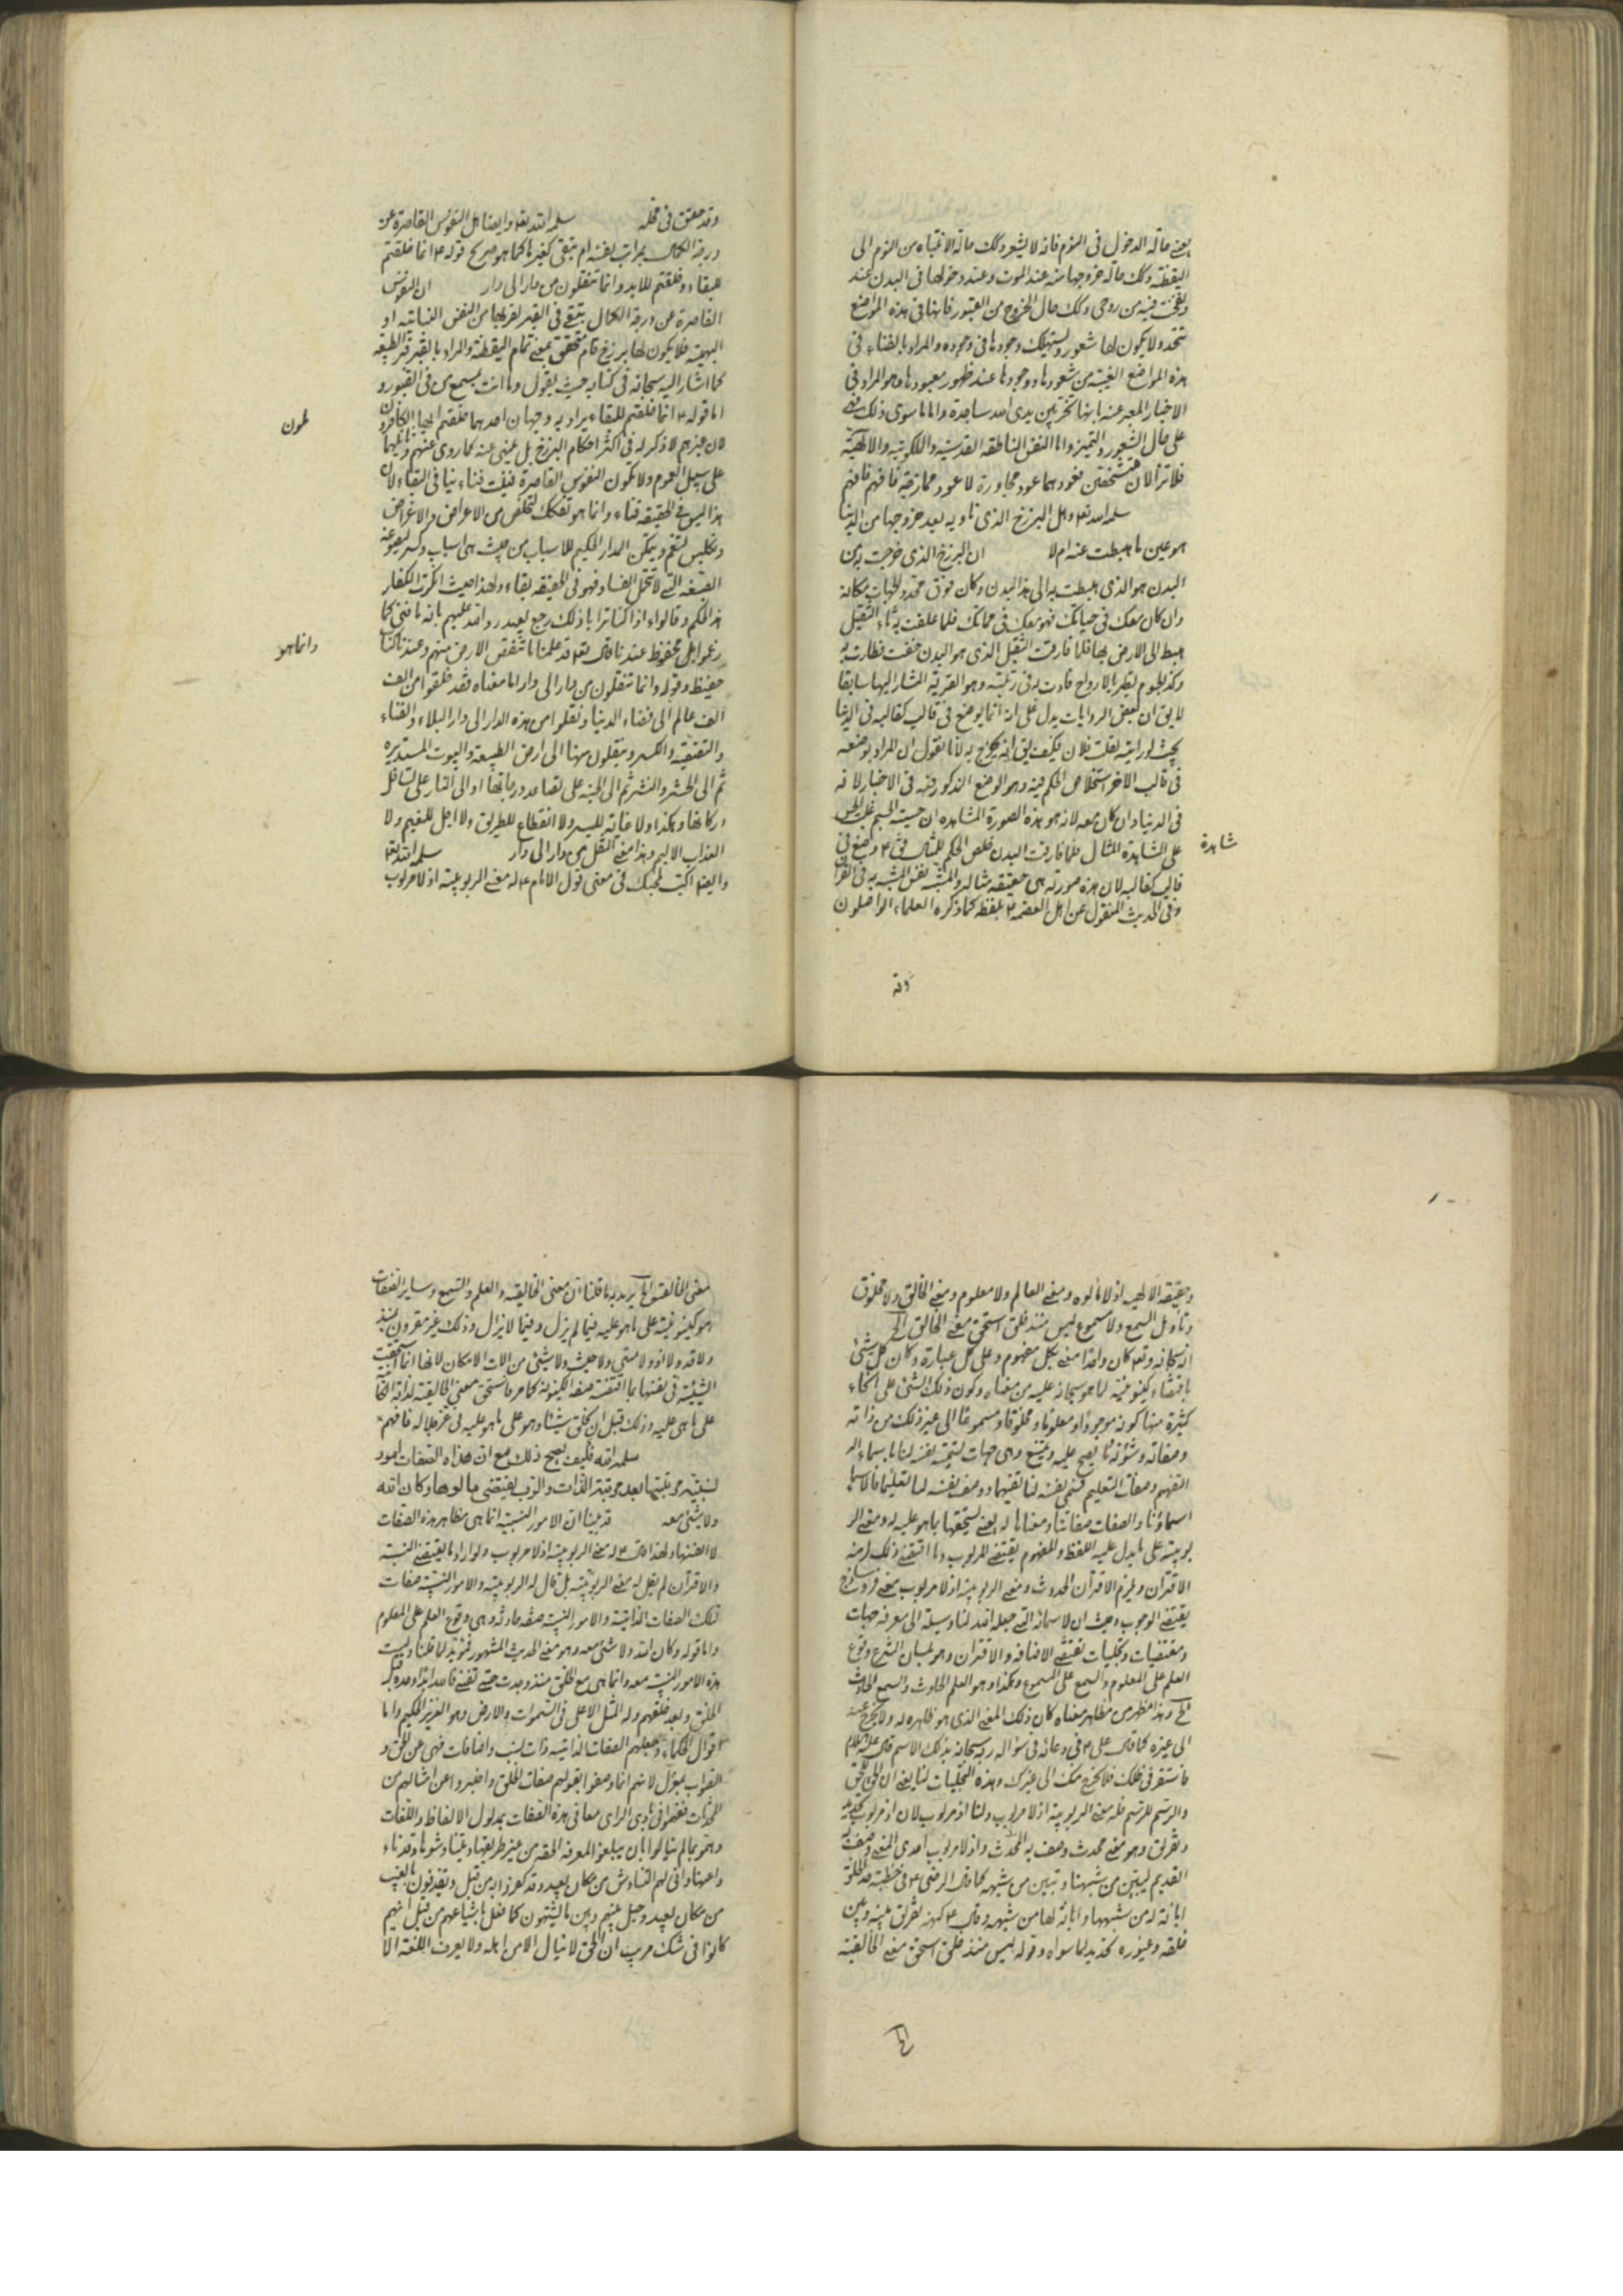 يعنى حالة الدخول فى النوم فانه لا يشعر وكك حالة الانتباه من النوم الى
اليقظة وكك حالة خروجها منه عند الموت وعند دخولها فى البدن عند
ونفخت فيه من روحى وكك حال الخروج من القبور فانها فى هذه المواضع
تتحد ولا يكون لها شعور ويستهلك وجودها فى وجوده والمراد بالفناء فى
هذه المواضع الغيبة من شعورها ووجودها عند ظهور معبودها وهو المراد فى
الاخبار المعبر عنه بانها تخر بين يدى الله ساجدة واما ما سوى ذلك فهى
على حال الشعور والتميز واما النفس الناطقة القدسية والملكوتية والالهية
فلا تزالان متشخصتين فعودهما عود مجاورة لا عود ممازجة فافهم فافهم
سلمه الله تعالى وهل البرزخ الذى تاوى به بعد خروجها من الدنيا
هو عين ما هبطت عنه ام لا ان البرزخ الذى خرجت به من
البدن هو الذى هبطت به الى هذا البدن وكان فوق محدد الجهات مكانه
وان كان معك فى حياتك فهو معك فى مماتك فلما علقت به ثاء الثقيل
هبط الى الارض بها فلما فارقت الثقيل الذى هو البدن خفت فطارت به
لا يق ان بعض الروايات يدل على انه انما يوضع فى قالب كقالبه فى الدنيا
بحيث لو رايته لقلت فلان فكيف يق انه يخرج به لانا نقول ان المراد بوضعه
فى قالب الاخر استخلاص الحكم فيه وهو الوضع المذكور فيه فى الاخبار لانه
فى الدنيا وان كان معه لانه هو هذه الصورة المشاهدة ان حيثية الجسم غلبت الحس
على المشاهدة المثال فلما فارقت البدن خلص الحكم للمثال فق ع وضع فى
شاهدة
قالب كقالبه لان هذه صورته هى حقيقة مثاله والمشبه نفس المشبه به فى القران
وفى الحديث المنقول عن اهل العصمة ع بلفظه كما ذكره العلماء الواصلون
وقد
وقد حقق فى محله سلمه الله تعالى وايضا هل النفوس القاصرة عن
درجة الكمال بمراتب يفنيها ام تبقى كغيرها كما هو صريح قوله ع انما خلقتم
للبقاء وخلقتم للابد وانما تنقلون من دار الى دار ان النفوس
القاصرة عن درجة الكمال تبقى فى القبر لقربها من النفس النباتية او
البهيمية فلا يكون لها برزخ تام متحقق بمعنى تمام اليقظة والمراد بالقبر قبر الطبيعة
كما اشار اليه سبحانه فى كتابه حيث يقول وما انت بمسمع من فى القبور و
اما قوله ع انما خلقتم للبقاء يراد به وجهان احدهما خلقتم ايها الكاملون
لان غيرهم لا ذكر له فى اكثر احكام البرزخ بل يلهى عنه كما روى عنهم وثانيهما
على سبيل العموم ولا يكون النفوس القاصرة فنيت فناء ينافى البقاء لان
هذا ليس فى الحقيقة فناء وانما هو تفكك لتخلص من الاعراض والاغراض
الصيغة التى لا تحتمل الفساد فهو فى الحقيقة بقاء ولهذا حيث انكرت الكفار
هذا الحكم وقالوا ءاذا كنا ترابا ذلك رجع بعيد رد الله عليهم بانه ما فنى كما
زعموا بل محفوظ عندنا فقال تعالى قد علمنا ما تنقص الارض منهم وعندنا كتاب
وانما هو
حفيظ وقوله وانما تنقلون من دار الى دار اما معناه فقد خلقوا من الف
الف عالم الى فضاء الدنيا ونقلوا من هذه الدار الى دار البلاء والفناء
والتصفية والكسر وينقلون منها الى ارض الطبيعة والبيوت المستديره
ثم الى الحشر والنشر ثم الى الجنة على تصاعد درجاتها او الى النار على تسافل
دركاتها وهكذا ولا غاية للسير ولا انقطاع للطريق ولا اجل للنعيم ولا
العذاب الاليم وهذا معنى النقل من دار الى دار سلمه الله تعالى
وايضا اكتب لمحبك فى معنى قول الامام ع له معنى الربوبية اذ لا مربوب
وحقيقة الالهية اذ لا مالوه ومعنى العالم ولا معلوم ومعنى الخالق ولا مخلوق
وتاويل السمع ولا مسموع ليس منذ خلق استحق معنى الخالق الخ
انه سبحانه وتعالى كان واحدا معنى بكل مفهوم وعلى كل عبارة وكان كل شئ
باقتضاء كينونيته لما هو سبحانه عليه من معناه وكون ذلك الشئ على انحاء
كثيرة منها كونه موجودا ومعلوما ومخلوقا ومسموعا الى غير ذلك من ذاته
التفهيم وصفات التعليم فسمى نفسه لنا تفهيما ووصف نفسه لنا تعليما فالاسماء
اسماؤنا والصفات صفاتنا ومعناها له يعنى يستحقها بما هو عليه له ومعنى الر
بوبية على ما يدل عليه اللفظ والمفهوم يقتضى المربوب وما اقتضى ذلك لزمه
الاقتران ويلزم الاقتران الحدوث ومعنى الربوبية اذ لا مربوب معنى
يقتضى الوجوب وحيث ان لاسمائه التى جعلها الله لنا وسيلة الى معرفته جهات
ومقتضيات وتجليات تقتضى الاضافة والاقتران وهو لسان الشرع وقوع
العلم على المعلوم والسمع على المسموع وهكذا وهو العلم الحادث والسمع الحادث
الخ وهذا مظهر من مظاهر معناه كان ذلك المعنى الذى هو ظاهره له ولا يخرج عنه
الى غيره كما قال على ع فى دعائه فى سؤاله ربه سبحانه بذلك الاسم قال عليه السلام
فاستقر فى ظلك فلا يخرج منك الى غيرك وهذه التجليات لنا يعنى ان الحق للحق
والرسم للرسم فله معنى الربوبية اذ لا مربوب ولنا اذ مربوب لان اذ مربوب تحديد
وتفريق وهو معنى محدث وصف به المحدث واذ لا مربوب احدى المعنى وصف به
القديم ليتبين من شبهنا وتبين من شبهه كما قال الرضى ع فى خطبته خلقه
ابانة له من شبهها وابانة لها من شبهه وقال ع كنهه تفريق بينه وبين
خلقه وغيوره تحديد لما سواه وقوله ليس منذ خلق استحق معنى الخالقية
معنى الخالقية انما يريد به ما قلنا ان معنى الخالقية والعلم والسمع وساير الصفات
هو كينونيته على ما هو عليه فيما لم يزل وفيما لا يزال وذلك غير مقرون بمنذ
ولا قد ولا اذ ولا متى ولا حيث ولا بشئ من الات الامكان لانها انما تحققت
على ما هى عليه وذلك قبل ان يخلق شيئا وهو على ما هو عليه فى عز جلاله فافهم
سلمه الله فكيف يصح ذلك مع ان هذه الصفات امور
نسبية مرتبتها بعد مرتبة الذات والرب يقتضى مالوها وكان الله
ولا شئ معه قد بينا ان الامور النسبية انما هى مظاهر هذه الصفات
لا انفسها ولهذا قال ع له معنى الربوبية اذ لا مربوب ولو اراد ما يقتضى النسبة
والاقتران لم يقل له معنى الربوبية بل قال له الربوبية والامور النسبية صفات
تلك الصفات الذاتية والامور النسبية صفة حادثة وهى وقوع العلم على المعلوم
واما قوله وكان الله ولا شئ معه وهو معنى الحديث المشهور فمؤيد لما قلنا وليست
هذه الامور النسبية معه وانما هى مع الخلق منذ وجدت حتى تفنى
الخلق وبعد خلقهم وله المثل الاعلى فى السموات والارض وهو العزيز الحكيم واما
اقوال الحكماء وجعلهم الصفات الذاتية ذات نسب واضافات فهى عن الحق و
الصواب بمعزل لانهم انما وصفوا بقولهم صفات الخلق واخبروا عن امثالهم من
المحدثات ففهموا فى بادى الراى معانى هذه الصفات بمدلول الالفاظ واللغات
وهموا بما لم ينالوا بان يبلغوا المعرفة الحقة من غير طريقها
وانى لهم التناوش من مكان بعيد وقد كفروا به من قبل ويقذفون بالغيب
من مكان بعيد وحيل بينهم وبين ما يشتهون كما فعل باشياعهم من قبل انهم
كانوا فى شك مريب ان الحق لا ينال الا من اهله ولا يعرف اللغة الا